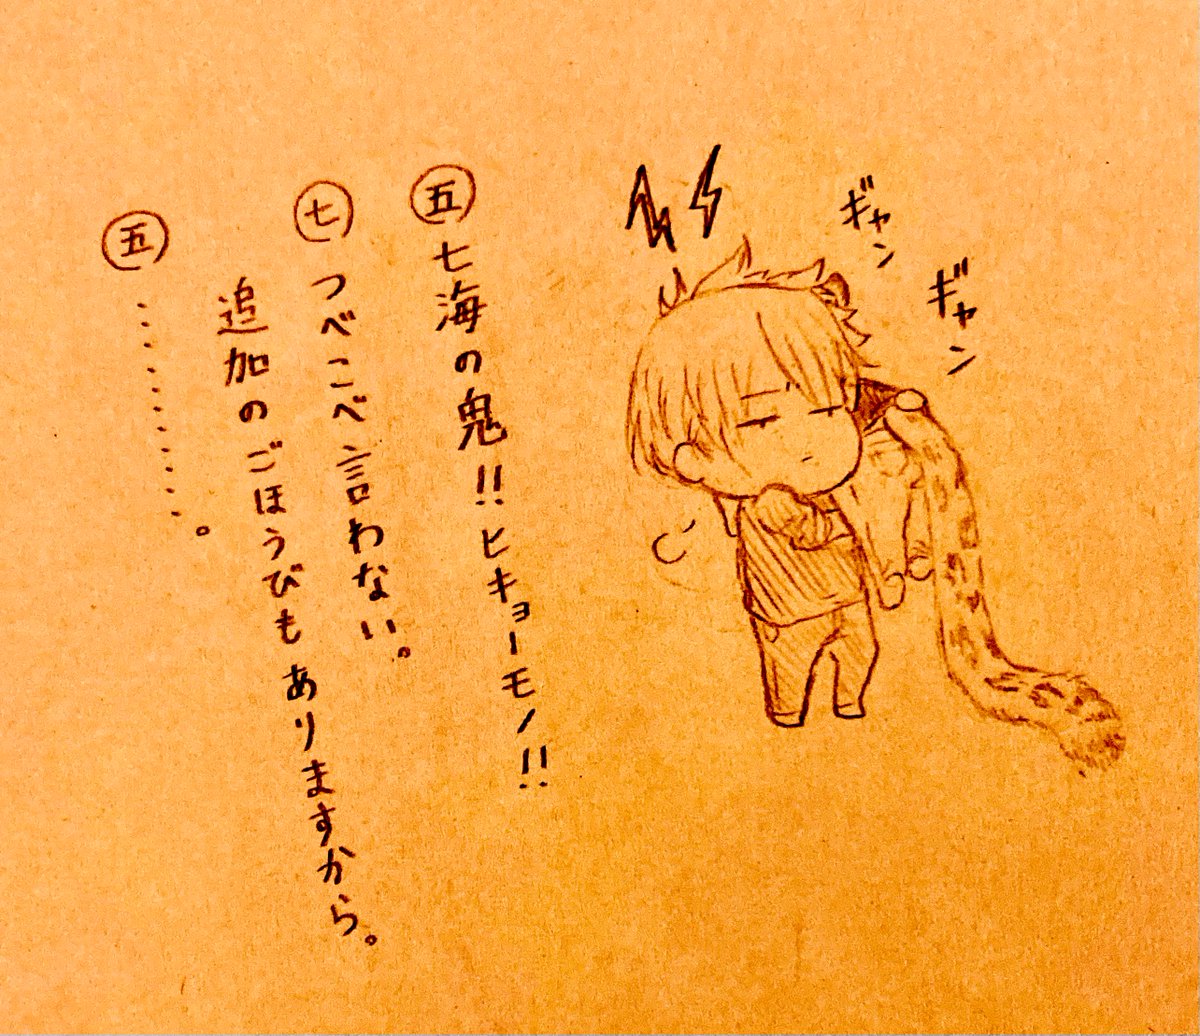 ギャン
ギャン
五 七海の鬼!! ヒキョーモノ!!
七 つべこべ言わない。
追加のごほうびもありますから。
五 ………。